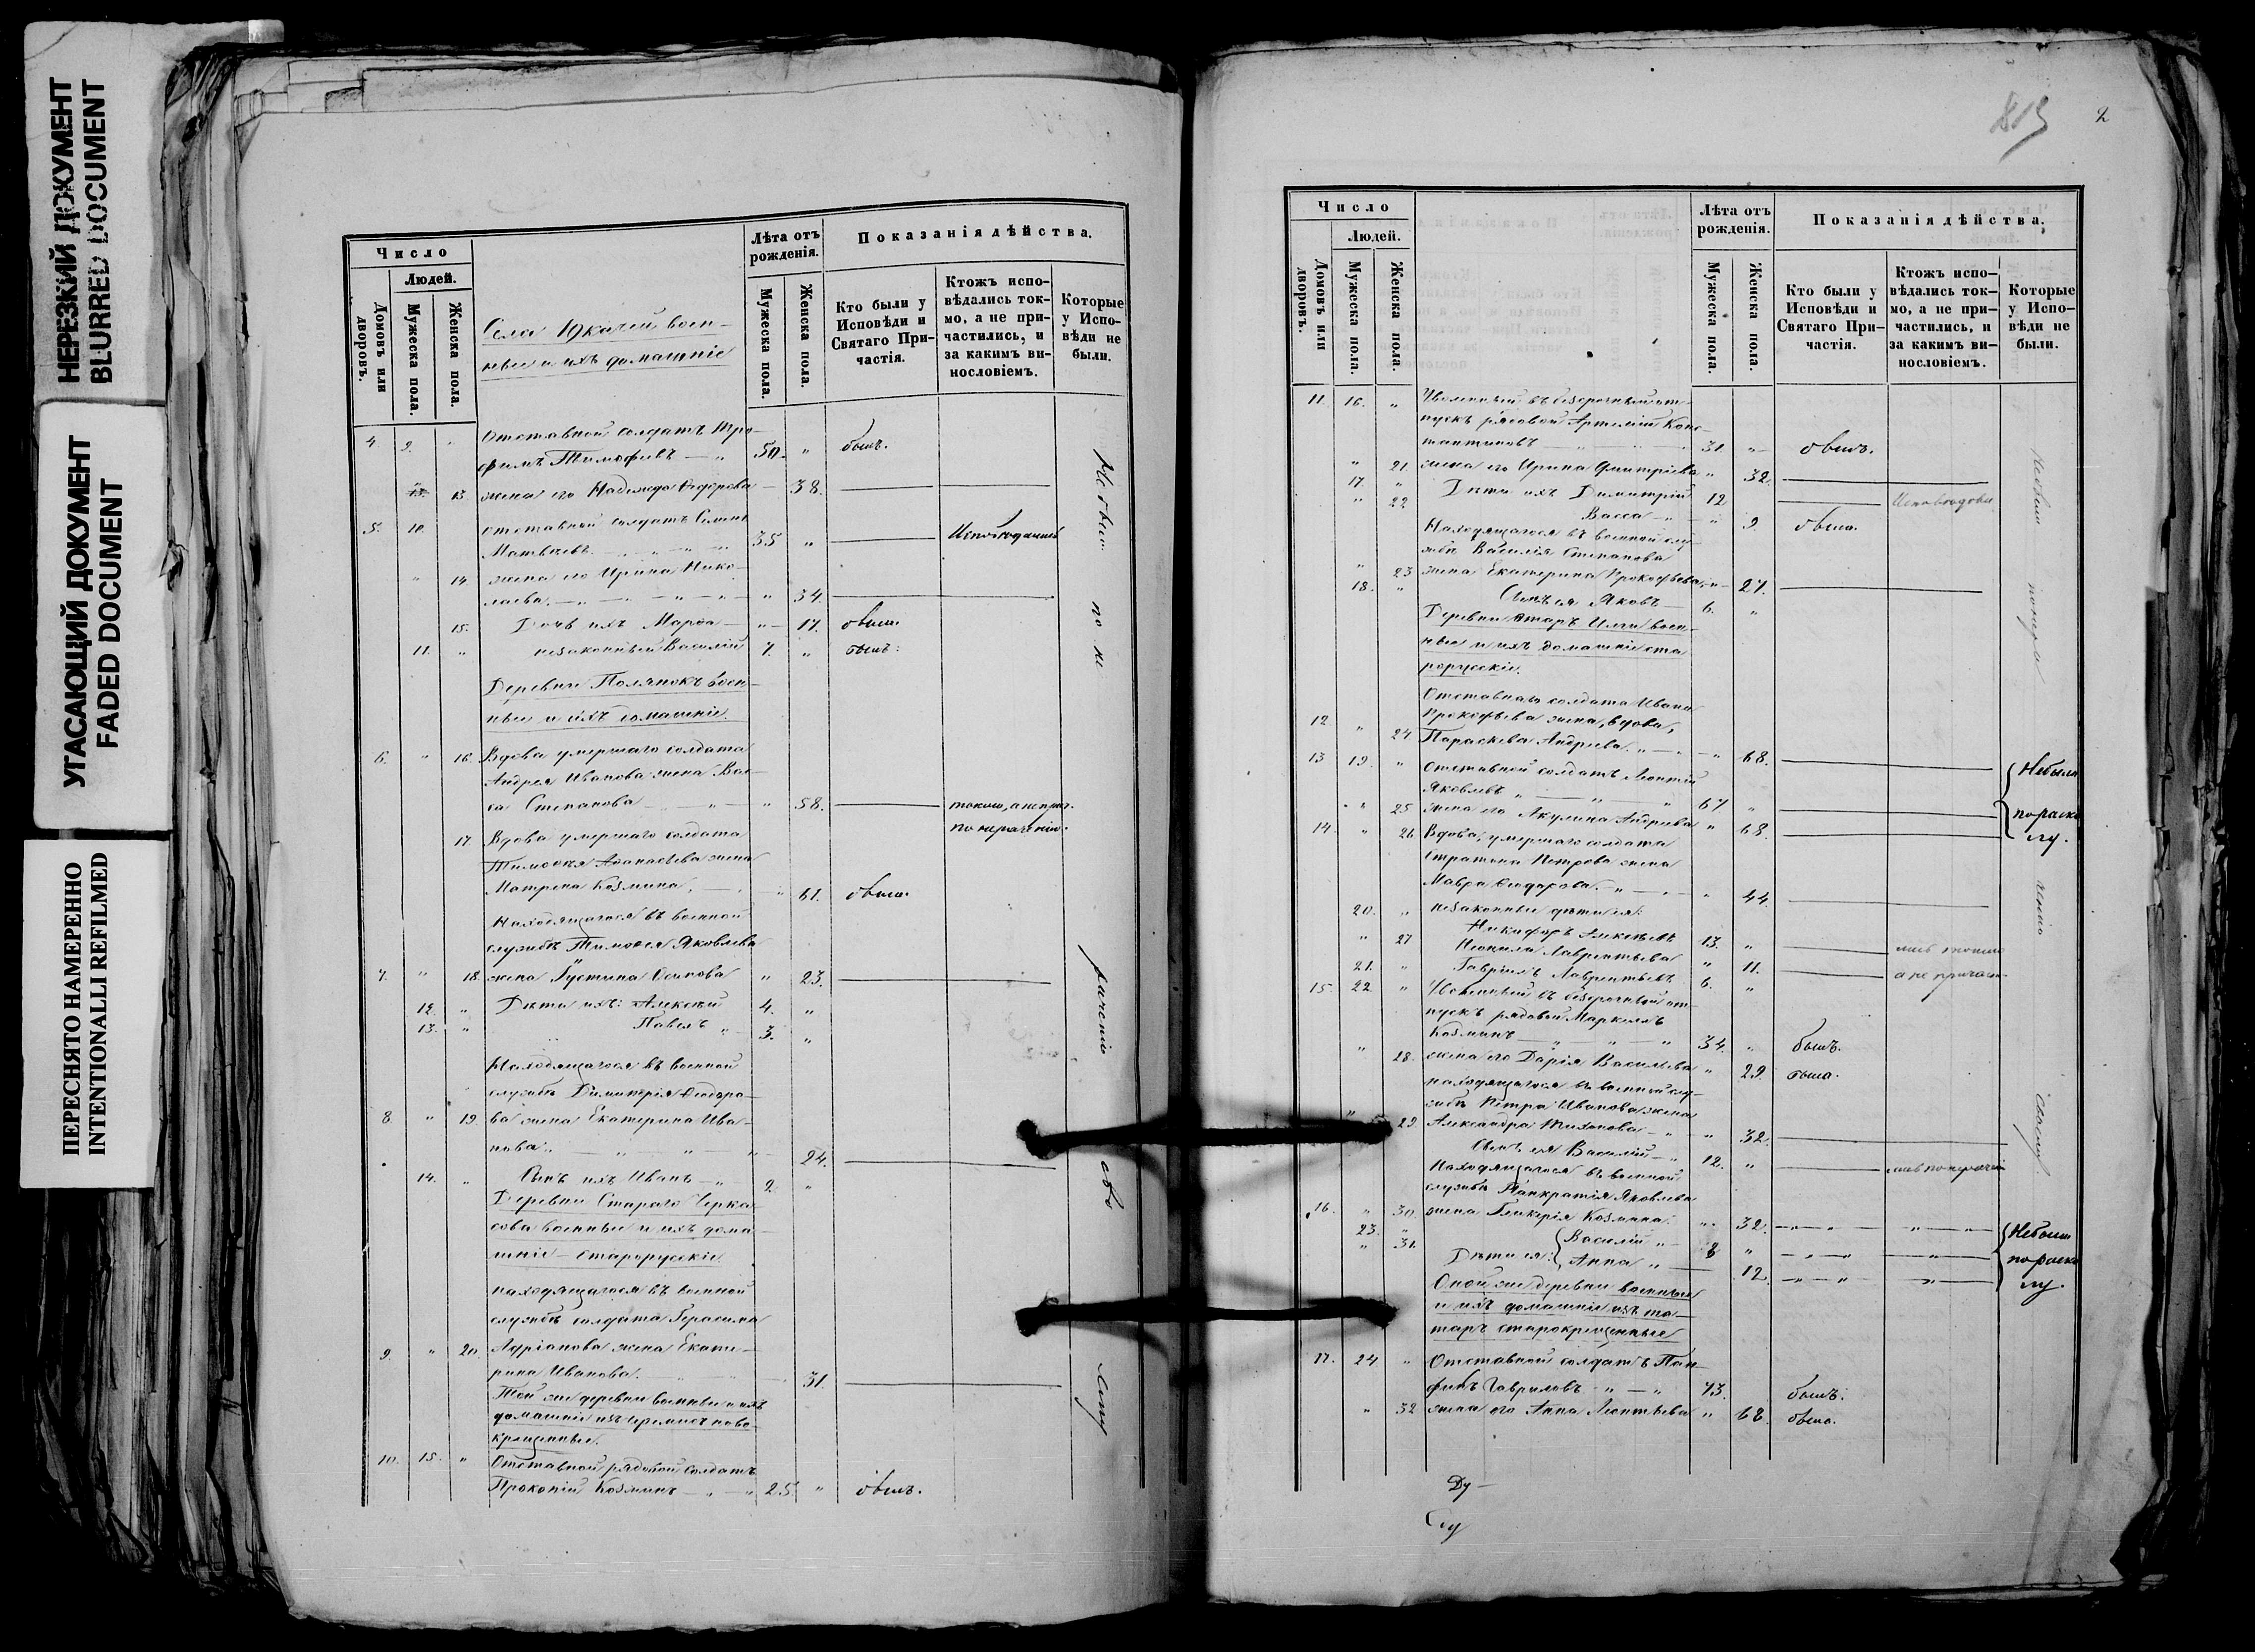 НЕРЕЗКИЙ ДОКУМЕНТ
BLURRED DOCUMENT
УГАСАЮЩИЙ ДОКУМЕНТ
FADED DOCUMENT
ПЕРЕСНЯТО НАМЕРЕННО
INTENTIONALLI REFILMED
Число
Людей.
Домовъ или дворовъ.
Мужеска пола.
Женска пола.
Села Юкачей воен-
ные и ихъ домашніе
Лѣта отъ рожденія.
Мужеска пола.
Женска пола.
Показанія дѣйства.
Кто были у Исповѣди и Святаго При-частія.
Ктожъ испо-вѣдались ток-мо, а не при-частились, и за какимъ ви-нословіемъ.
Которые у Испо-вѣди не были.
4. 9. " Отставной солдатъ Тро-
фимъ Тимофѣевъ — " 50. " былъ.
13. жена его Надежда Ѳедорова — 38.
5. 10. отставной солдатъ Семенъ
Матвѣевъ 35 "
" 14. жена его Ирина Нико-
лаева " 34.
15. Дочь ихъ Марѳа — " 17. была.
11. " незаконный Василій 7. " былъ.
Деревни Полянокъ воен-
ные и ихъ домашніе.
6. " 16. Вдова умершаго солдата
Андрея Иванова жена Вас-
са Степанова " 58. токмо, а не прич.
17 Вдова умершаго солдата по нераченію.
Тимоѳея Аѳанасьева жена
Матрена Козмина, " 61. была.
Находящагося въ военной
службѣ Тимоѳея Яковлева
7. " 18. жена Іустина Осипова " 23.
12. " Дѣти ихъ: Алексѣй 4. "
13. " Павелъ " 3. "
Находящагося въ военной
службѣ Димитрія Ѳеодоро-
8. " 19. ва жена Екатерина Ива-
нова. " 24.
14. " Сынъ ихъ Иванъ — " 2. "
Деревни Стараго Черка-
сова военные и ихъ дома-
шніе — старорусскіе.
находящагося въ военной
службѣ солдата Герасима
9. " 20. Адріанова жена Екате-
рина Иванова. 31.
Той же деревни военные и ихъ
домашніе изъ черемисъ ново-
крещенные.
10. 15. " Отставной рядовой солдатъ
Прокопій Козминъ — " — " 25. " былъ.
Не были по не раченію
2
Число
Людей.
Домовъ или дворовъ.
Мужеска пола.
Женска пола.
Лѣта отъ рожденія.
Мужеска пола.
Женска пола.
Показанія дѣйства.
Кто были у Исповѣди и Святаго При-частія.
Ктожъ испо-вѣдались ток-мо, а не при-частились, и за какимъ ви-нословіемъ.
Которые у Испо-вѣди не были.
11. 16. " Уволенный въ безсрочный от-
пускъ рядовой Артемій Конс-
тантиновъ 31 " былъ.
" 21. жена его Ирина Дмитріева " 32.
17. " Дѣти ихъ Димитрій 12
" 22 Васса — " 9 была.
Находящагося въ военной слу-
жбѣ Василія Степанова
" 23 жена Екатерина Прокофьева " 27.
18. " Сынъ ея Яковъ — 6. "
Деревни Старъ Илги воен-
ные и ихъ домашніе ста
рорусскіе.
Отставнаго солдата Ивана
12 Прокофьева жена, вдова,
" 24 Параскева Андреева. " 68.
13 19. " Отставной солдатъ Леонтій Небыли
Яковлевъ " 67 " по раско
" 25 жена его Акулина Андреева " 68. лу.
14. " 26 Вдова, умершаго солдата
Стратона Петрова жена
Мавра Ѳеодорова. " 44.
20. " незаконные дѣти ея:
Никифоръ Алексѣевъ 13. "
" 27 Неонила Лаврентьева " 11.
21. " Гавріилъ Лаврентьевъ 6. " а не причаст
15 22. " Уволенный въ безсрочный от-
пускъ рядовой Маркеллъ
Козминъ 34. " былъ.
" 28. жена его Дарія Васильева " 29. была.
находящагося въ военной слу-
жбѣ Петра Иванова жена
" 29. Александра Тихонова — " 32.
Сынъ ея Василій — " 12. "
Находящагося въ военной
службѣ Панкратія Яковлева
16. " 30. жена Гликерія Козмина. " 32. Небыли
23. " Василій " 8 " по раско
" 31. Дѣти ея: Анна " 12. лу.
Оной же деревни военные
и ихъ домашніе изъ та-
таръ старокрещенные
17. 24 " Отставной солдатъ Пан-
филъ Гавриловъ " — " 73. былъ.
" 32 жена его Анна Леонтьева " 68. была.
Ду —